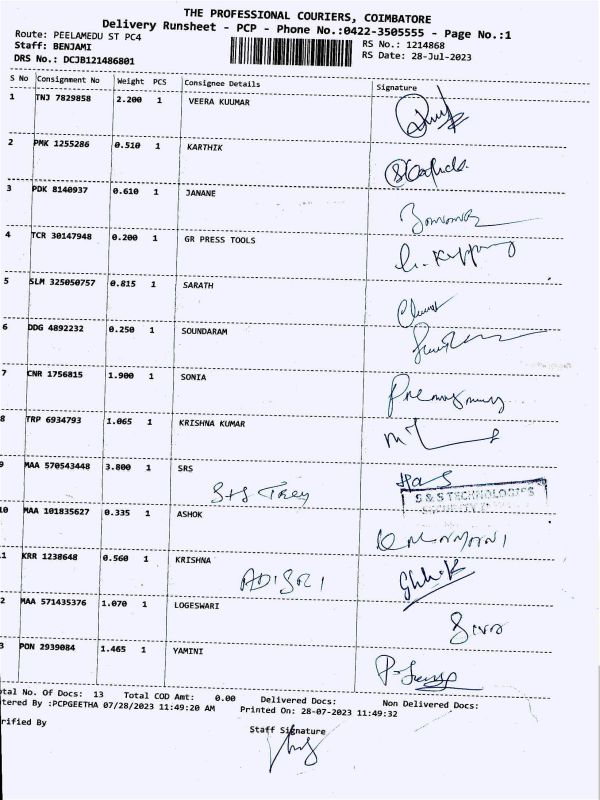 THE PROFESSIONAL COURIERS, COIMBATORE
Delivery Runsheet - PCP - Phone No.:0422-3505555 - Page No.:1
Route: PEELAMEDU ST PC4
RS No.: 1214868
Staff: BENJAMI
RS Date: 28-Jul-2023
DRS No.: DCJB121486801
S No Consignment No Weight PCS Consignee Details Signature
1 TNJ 7829858 2.200 1 VEERA KUUMAR
2 PMK 1255286 0.510 1 KARTHIK
3 PDK 8140937 0.610 1 JANANE
4 TCR 30147948 0.200 1 GR PRESS TOOLS
5 SLM 325050757 0.815 1 SARATH
6 DDG 4892232 0.250 1 SOUNDARAM
7 CNR 1756815 1.900 1 SONIA
8 TRP 6934793 1.065 1 KRISHNA KUMAR
9 MAA 570543448 3.800 1 SRS
S & S TECHNOLOGIES
10 MAA 101835627 0.335 1 ASHOK
1 KRR 1238648 0.560 1 KRISHNA
2 MAA 571435376 1.070 1 LOGESWARI
3 PON 2939084 1.465 1 YAMINI
otal No. Of Docs: 13 Total COD Amt: 0.00 Delivered Docs: Non Delivered Docs:
tered By :PCPGEETHA 07/28/2023 11:49:20 AM Printed On: 28-07-2023 11:49:32
rified By
Staff Signature